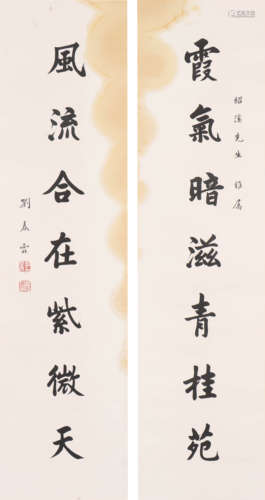 霞氣暗滋青桂苑
紹濱先生雅屬
風流合在紫微天
劉春霖